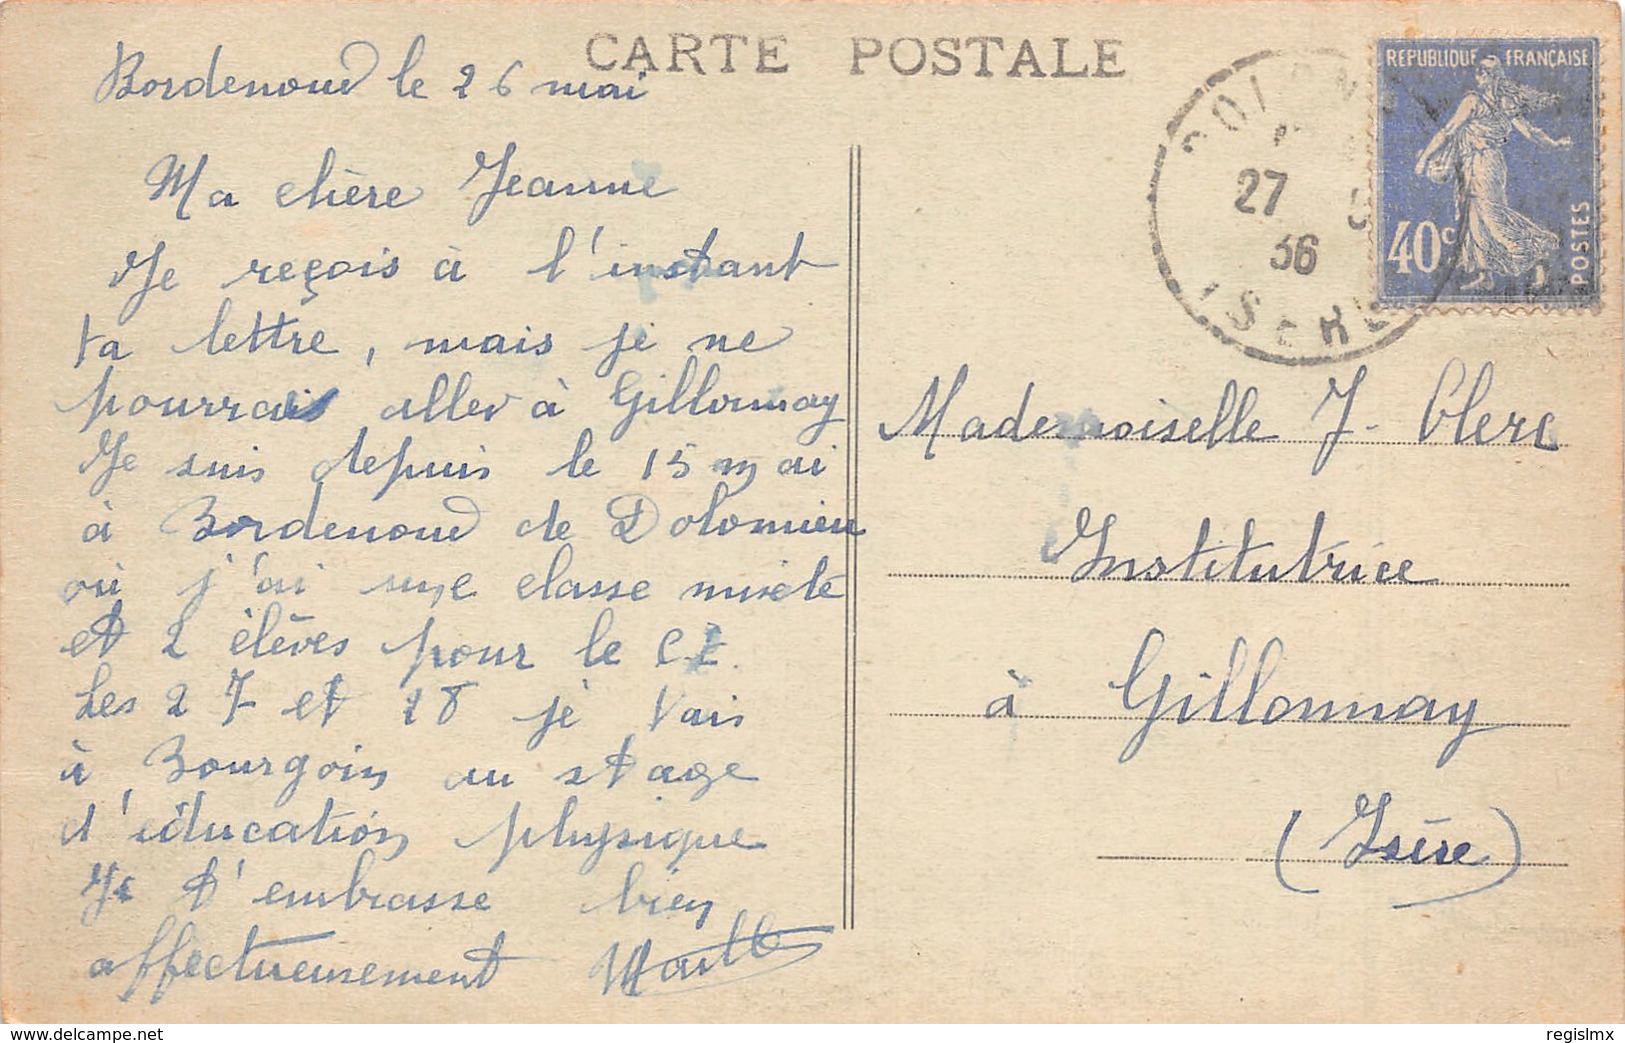 CARTE POSTALE
Bordenoud le 26 mai
Ma chère Jeanne
Je reçois à l'instant
ta lettre, mais je ne
pourrais aller à Gillonnay
Je suis depuis le 15 mai
à Bordenoud de Dolomieu
où j'ai une classe mixte
et 2 élèves pour le C.E.
Les 27 et 28 je vais
à Bourgoin au stage
d'éducation physique
Je t'embrasse bien
affectueusement
REPUBLIQUE FRANÇAISE
40c
POSTES
27
36
ISERE
Mademoiselle J. Clerc
Institutrice
à Gillonnay
(Isère)
https://www.delcampe.net
regislmx